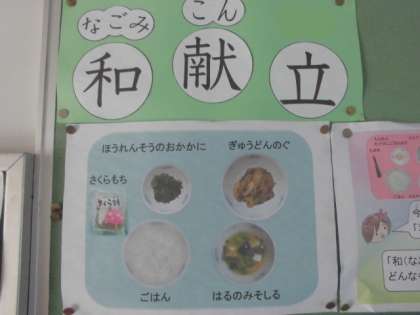 なごみ こん
和献立
ほうれんそうのおかかに ぎゅうどんのぐ
さくらもち
ごはん はるのみそしる
「和(な
どんな